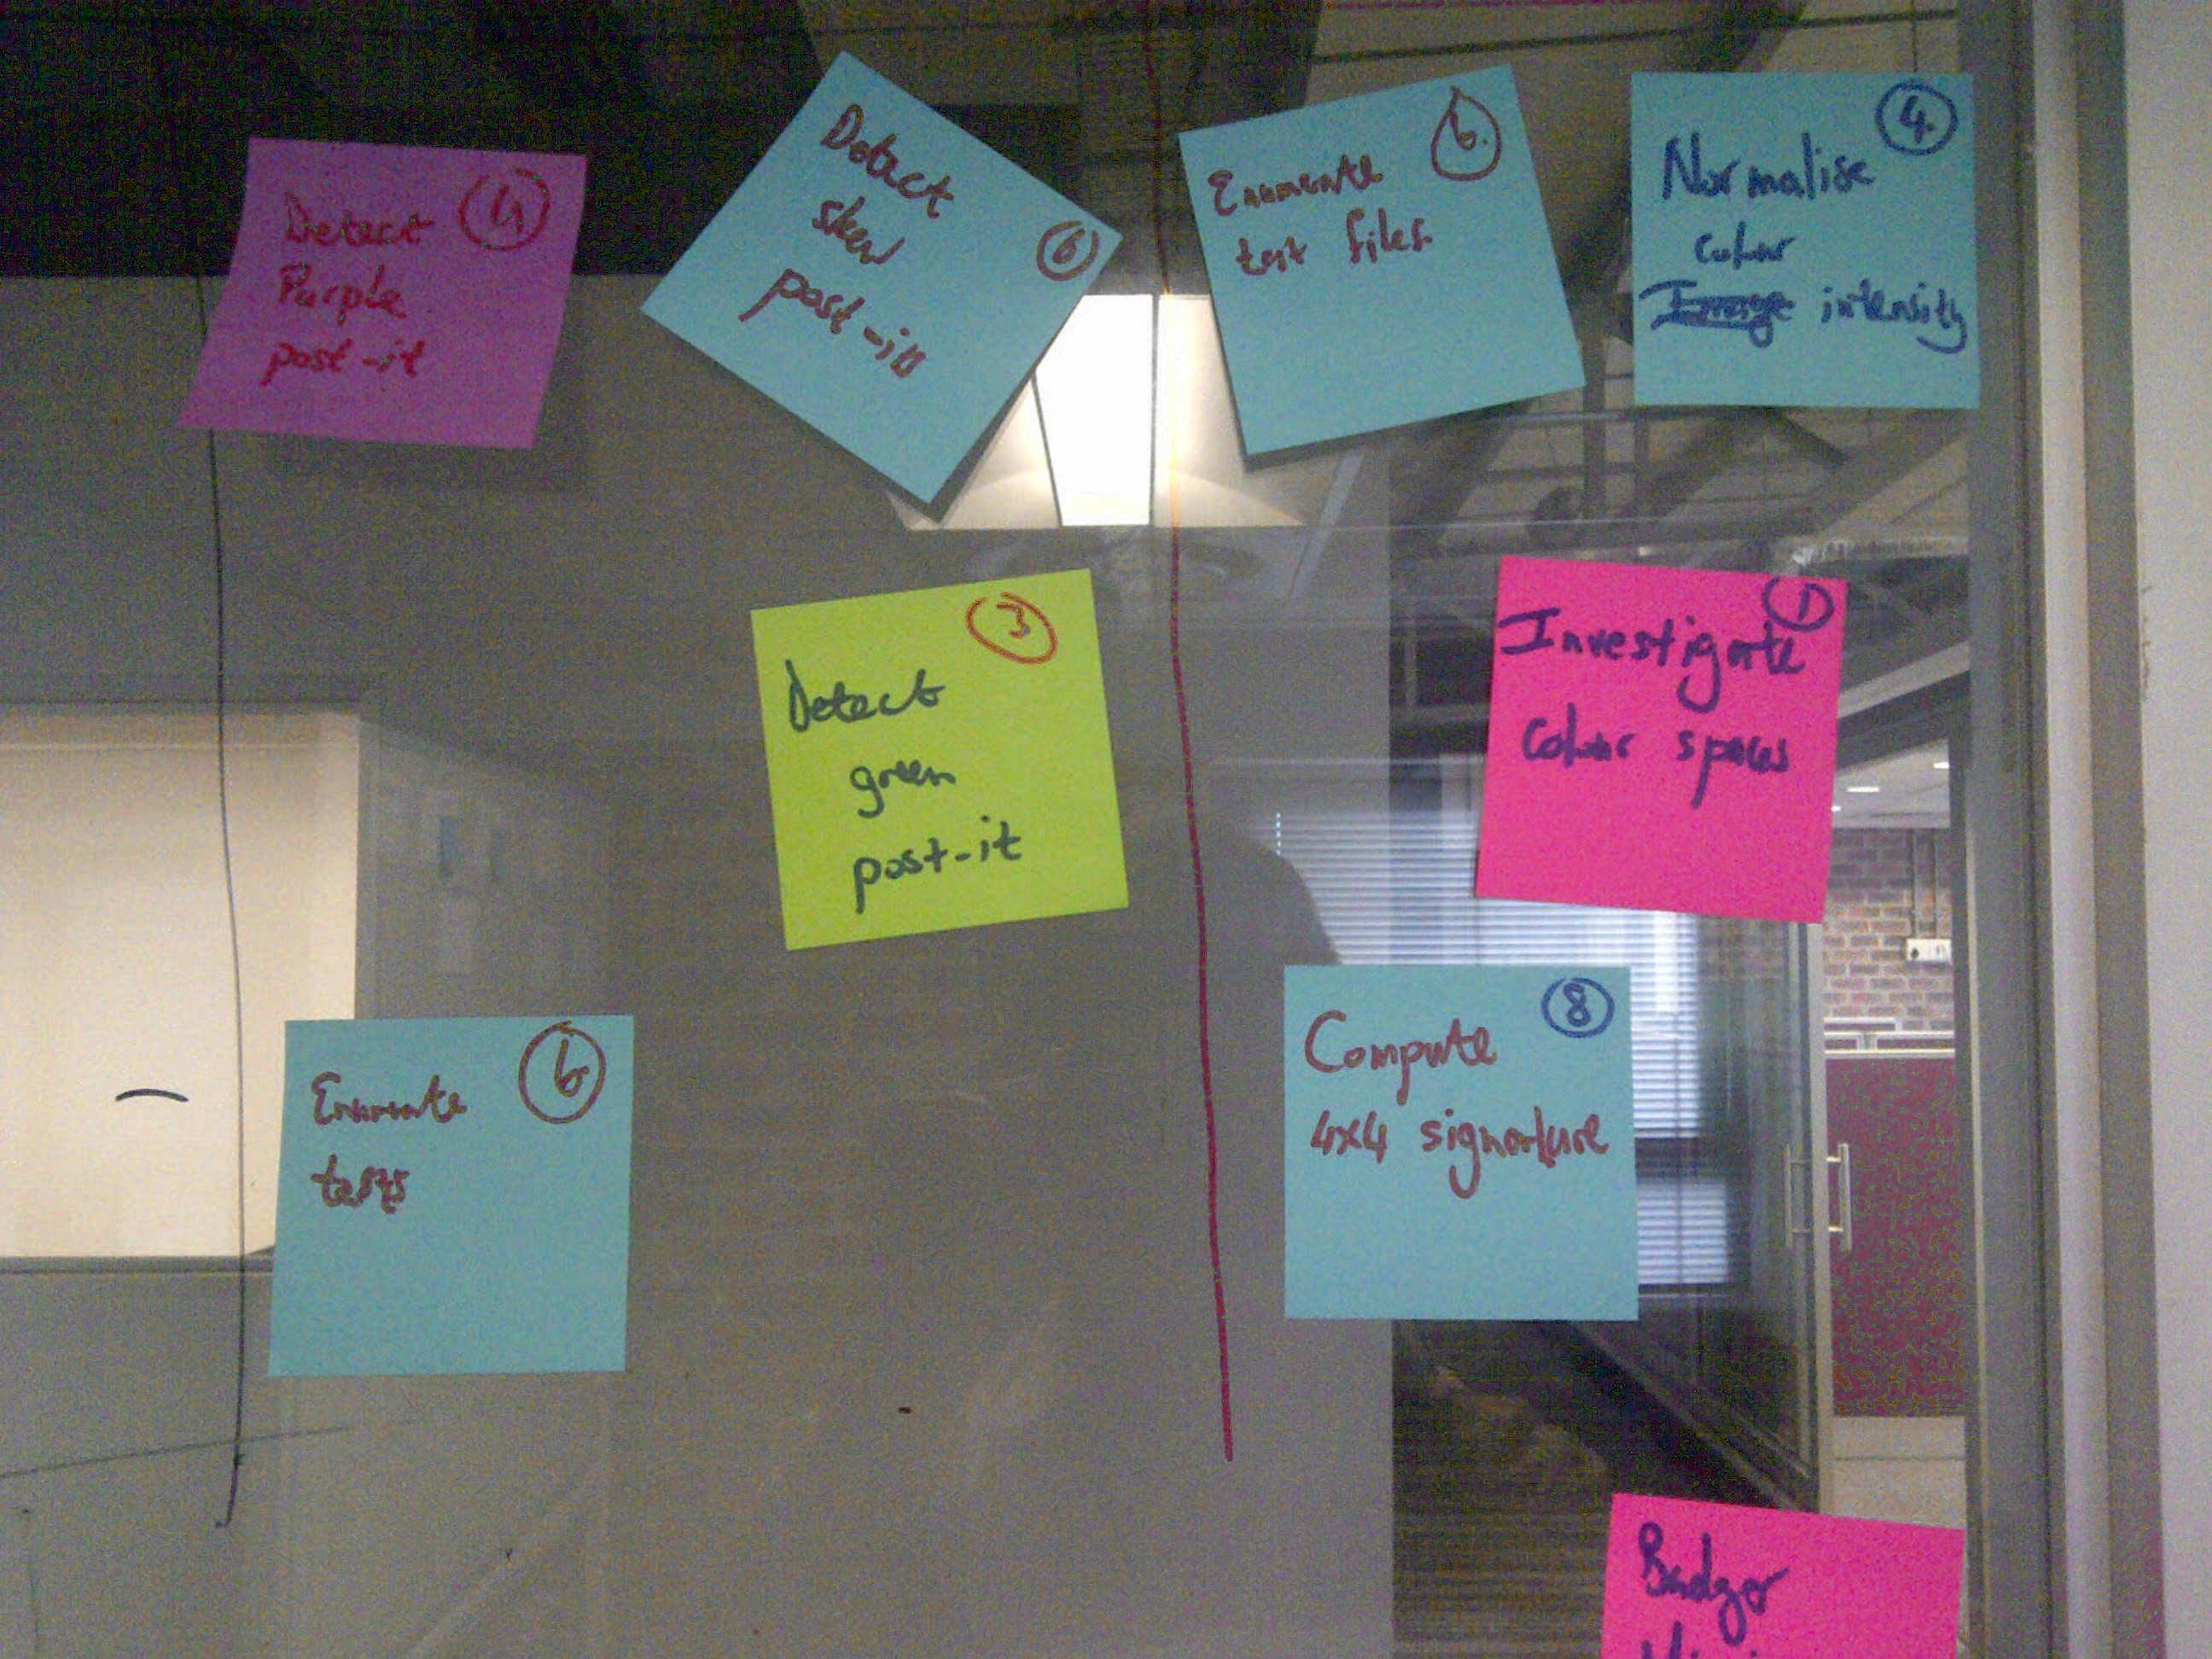 Detect
Purple
post-it
4
Detect
skew
post-it
6
Enumerate
test files
6.
Normalise
colour
Image intensity
4.
Detect
green
post-it
3
Investigate
colour spaces
1
Enumerate
tests
6
Compute
4x4 signature
8
Badger